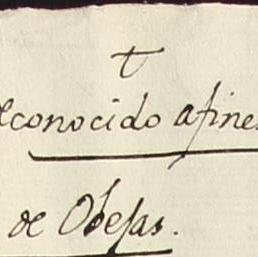 t
econocido afines
de Obejas.